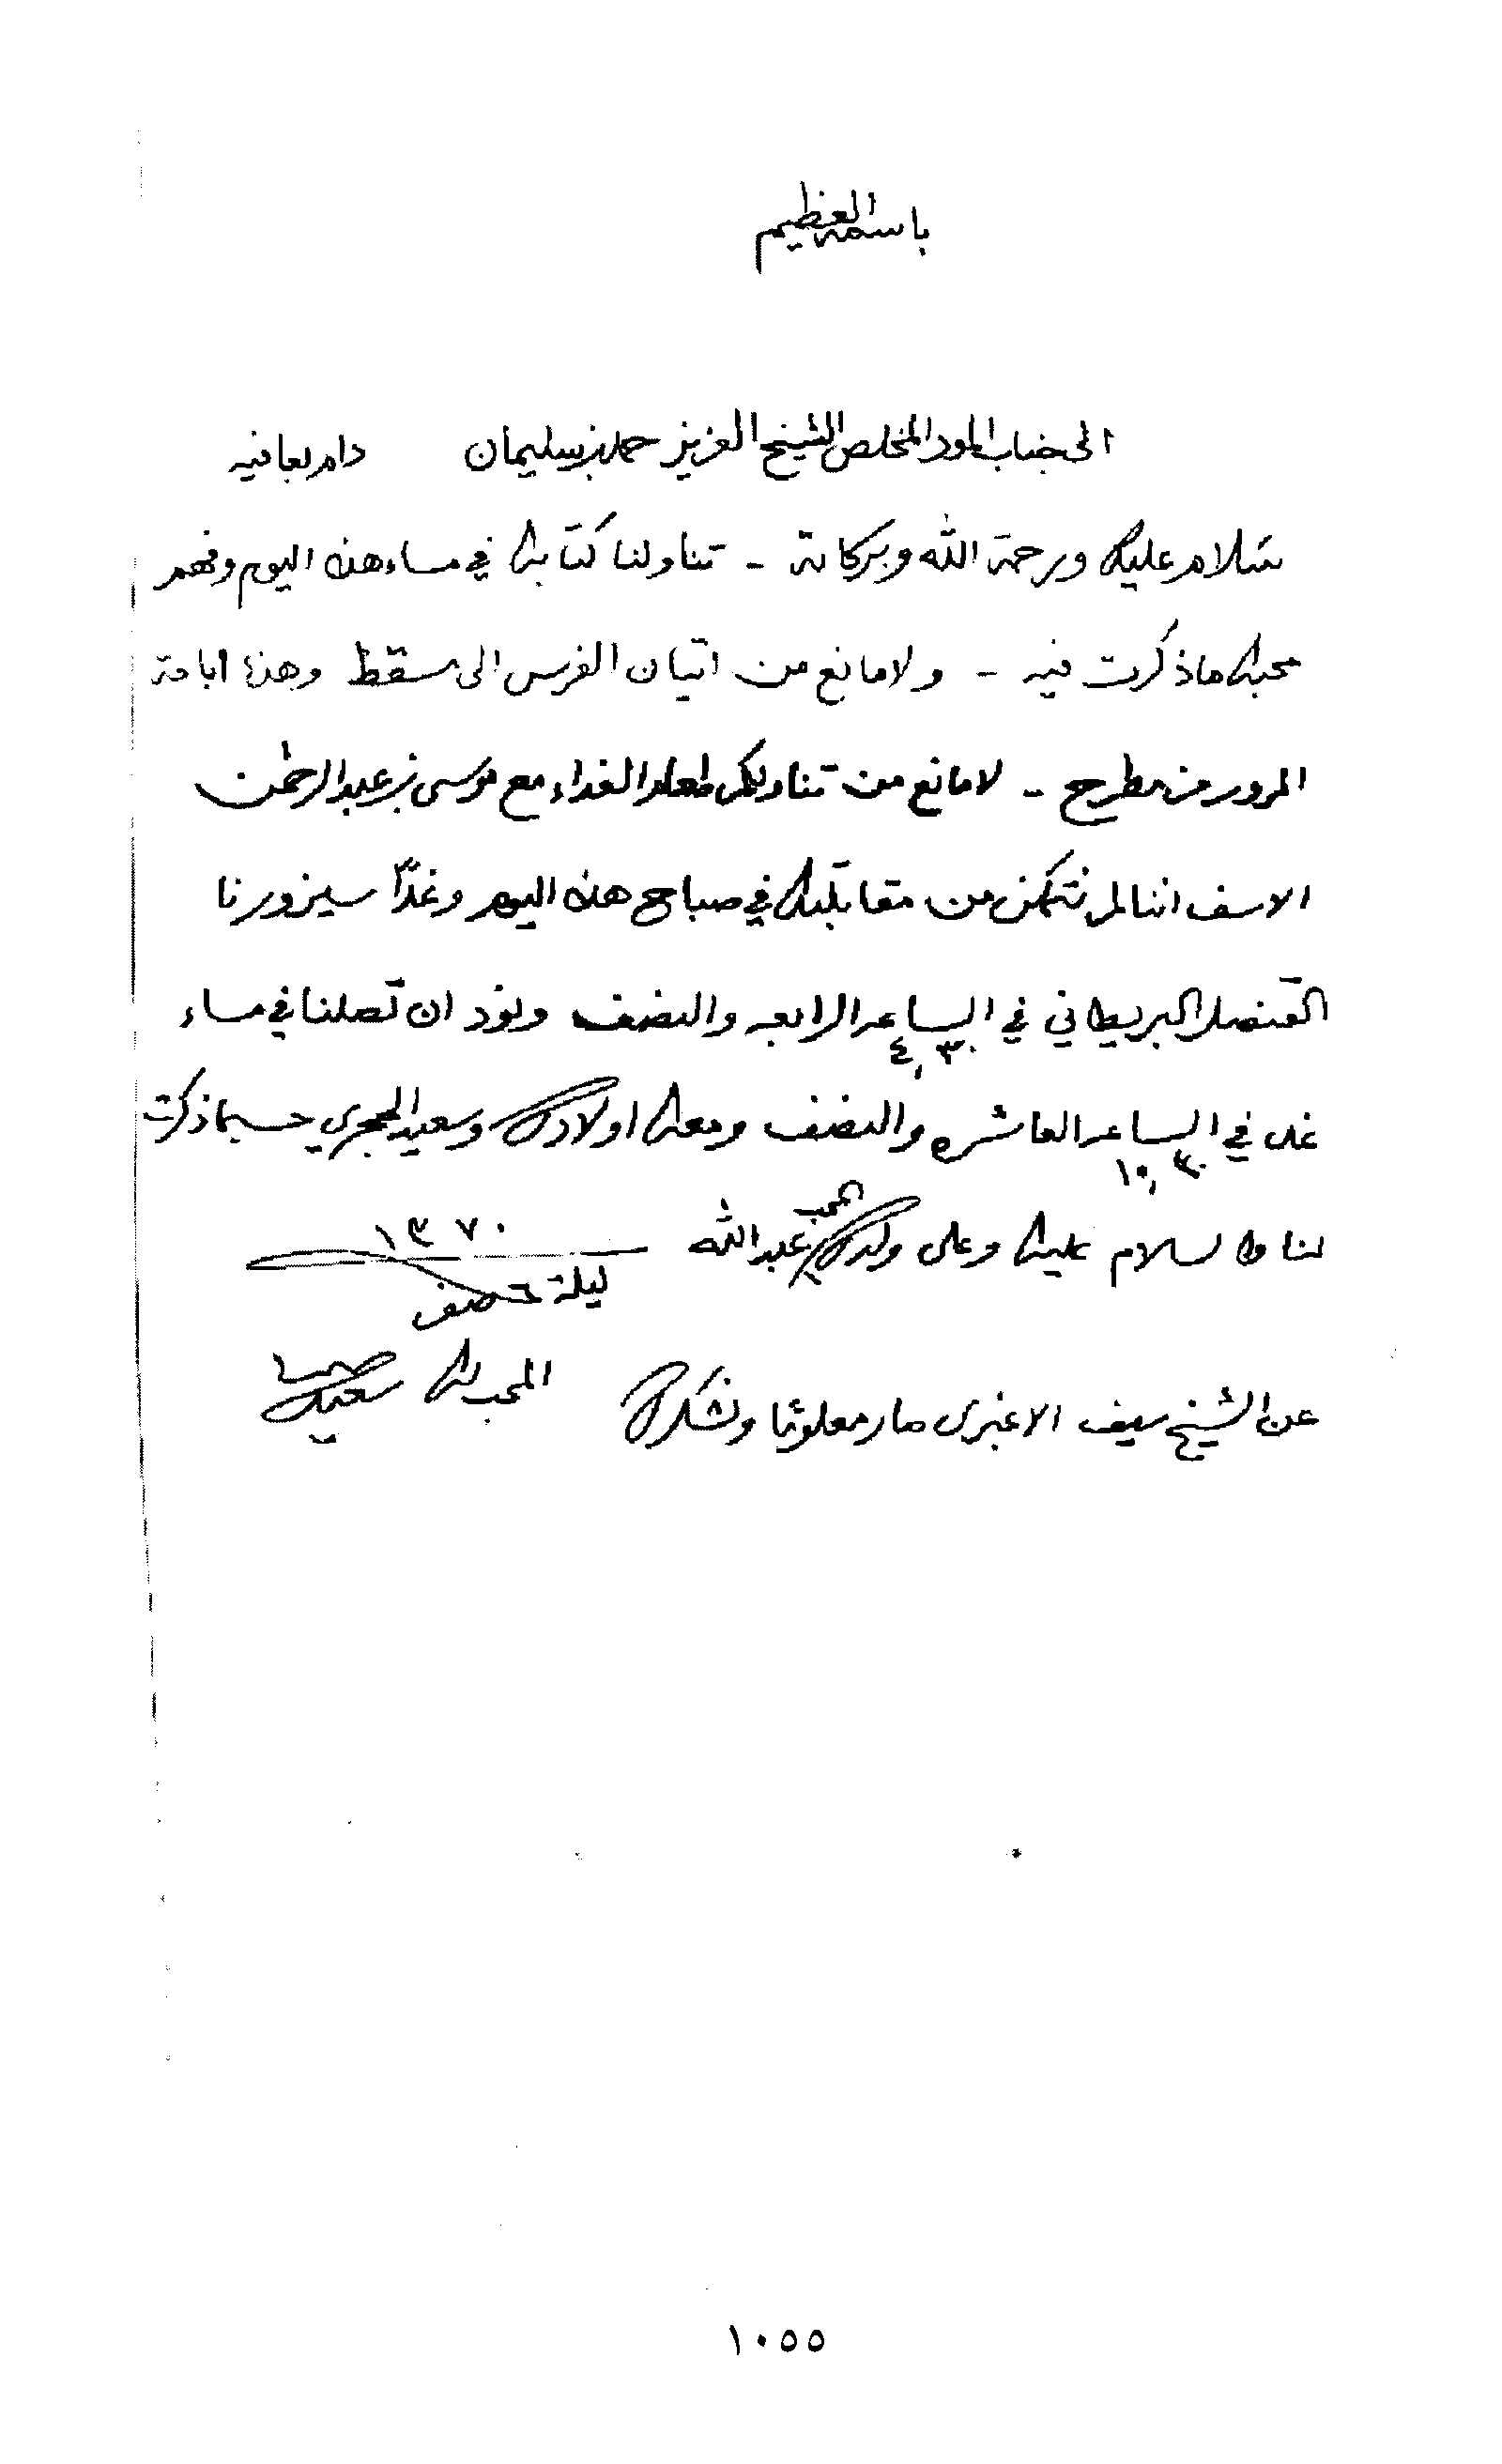 باسمه العظيم
الى جناب المود المخلص الشيخ العزيز حمد بن سليمان دام بعافيه
سلام عليك ورحمة الله وبركاته - تناولنا كتابك في مساء هذه اليوم وفهم
محبك ما ذكرت فيه - ولا مانع من اتيان الفرس الى مسقط وهذا اباحة
المرور من مطرح - لا مانع من تناولكم طعام الغداء مع موسى بن عبد الرحمن
الاسف اننا لم نتمكن من مقابلتك في صباح هذه اليوم وغداً سيزورنا
القنصل البريطاني في الساعه الرابعه والنصف ونود ان تصلنا في مساء
٤,٣٠
غد في الساعه العاشره والنصف ومعك اولادك وسعيد الحجري حسبما ذكرت
١٠,٣٠
لنا والسلام عليك وعلى ولدك المحب عبدالله
١٣٧٠
ليلة ٦ صفر
عن الشيخ سيف الاغبري صار معلوماً ونشكرك
المحب لك سعيد
١٠٥٥